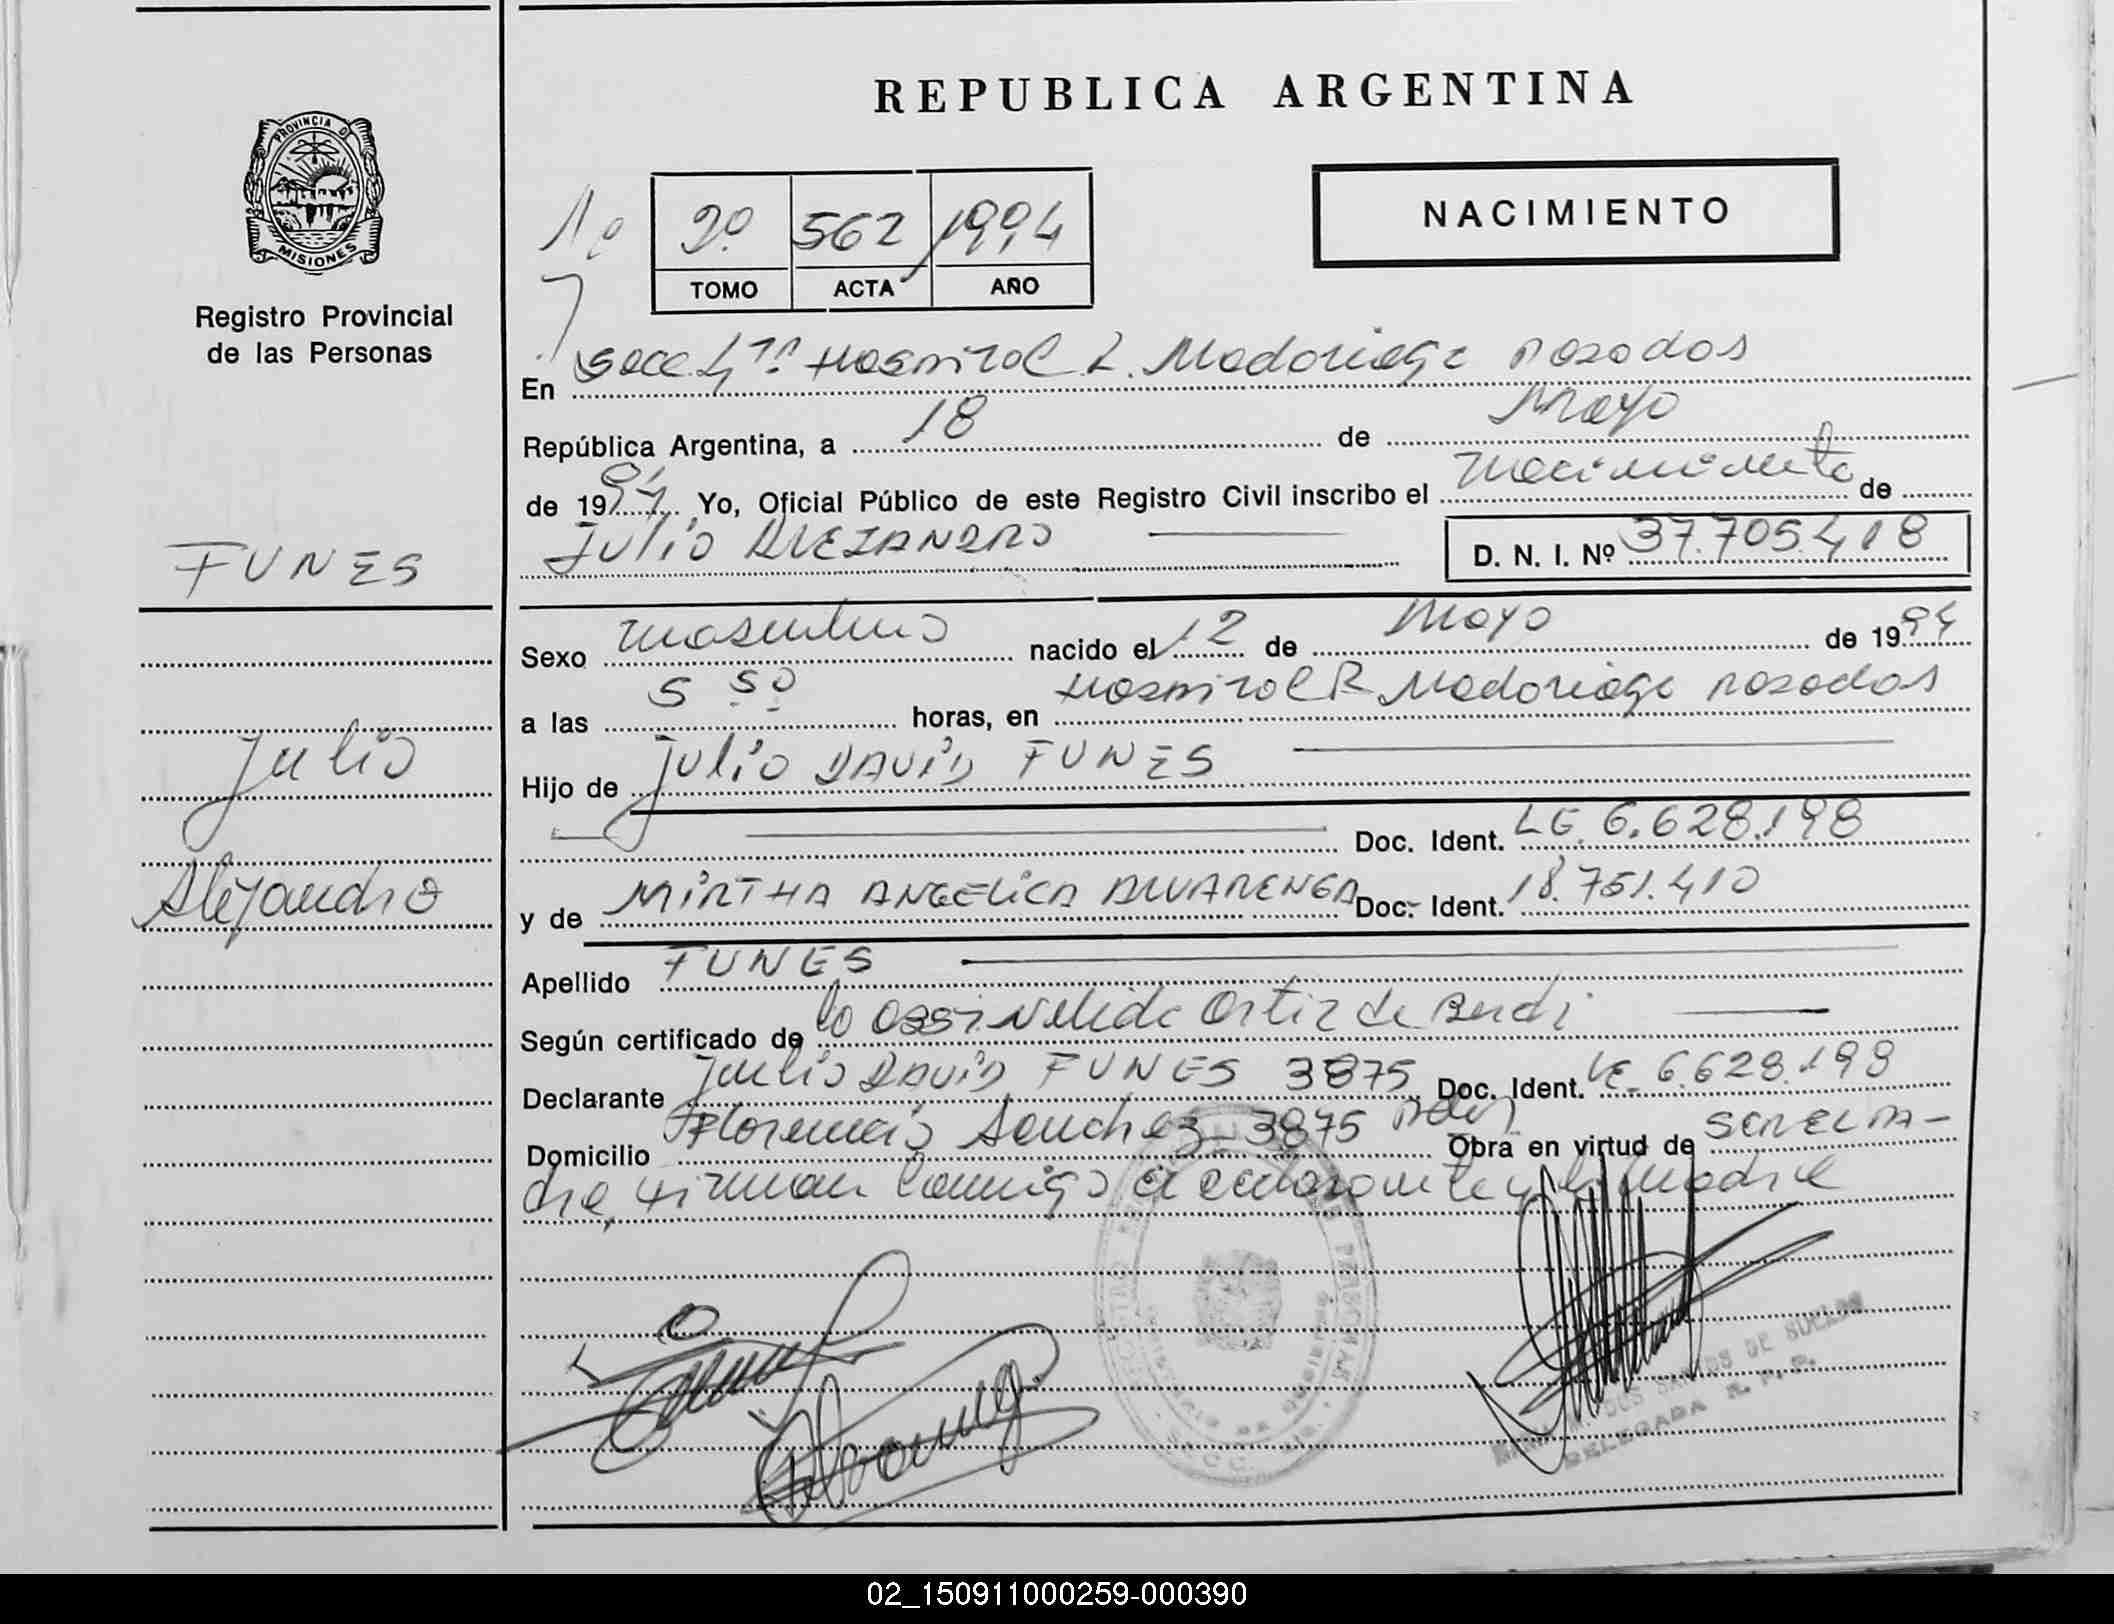 REPUBLICA ARGENTINA
PROVINCIA DE
MISIONES
Registro Provincial
de las Personas
2º 562 1994
TOMO ACTA AÑO
NACIMIENTO
En Secc. Hospital R. Madariaga Posadas
República Argentina, a 18 de Mayo
de 1994 Yo, Oficial Público de este Registro Civil inscribo el nacimiento de
Julio ALEJANDRO D. N. I. Nº 37.705.418
FUNES
Sexo masculino nacido el 12 de Mayo de 1994
a las 5 50 horas, en Hospital R Madariaga Posadas
Julio
Hijo de Julio DAVID FUNES
Doc. Ident. LE 6.628.198
Alejandro
y de MIRTHA ANGELICA ALVARENGA Doc. Ident. 18.751.410
Apellido FUNES
Según certificado de Ortiz de
Declarante Julio DAVID FUNES 3875 Doc. Ident. LE 6.628.198
Domicilio Florencio Sanchez 3875 Obra en virtud de SER EL PA-
dre, firman conmigo el declarante y la madre
DOS SANTOS DE
DELEGADA R. P. P.
02_150911000259-000390